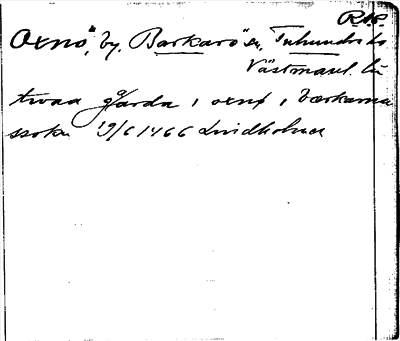 R.A.P.
Oxnö, by, Barkarö sn, Tuhundra hd
Västmanl. län
twaa garda i oxnø i barkarna
sokn 19/6 1466 Lindholmen